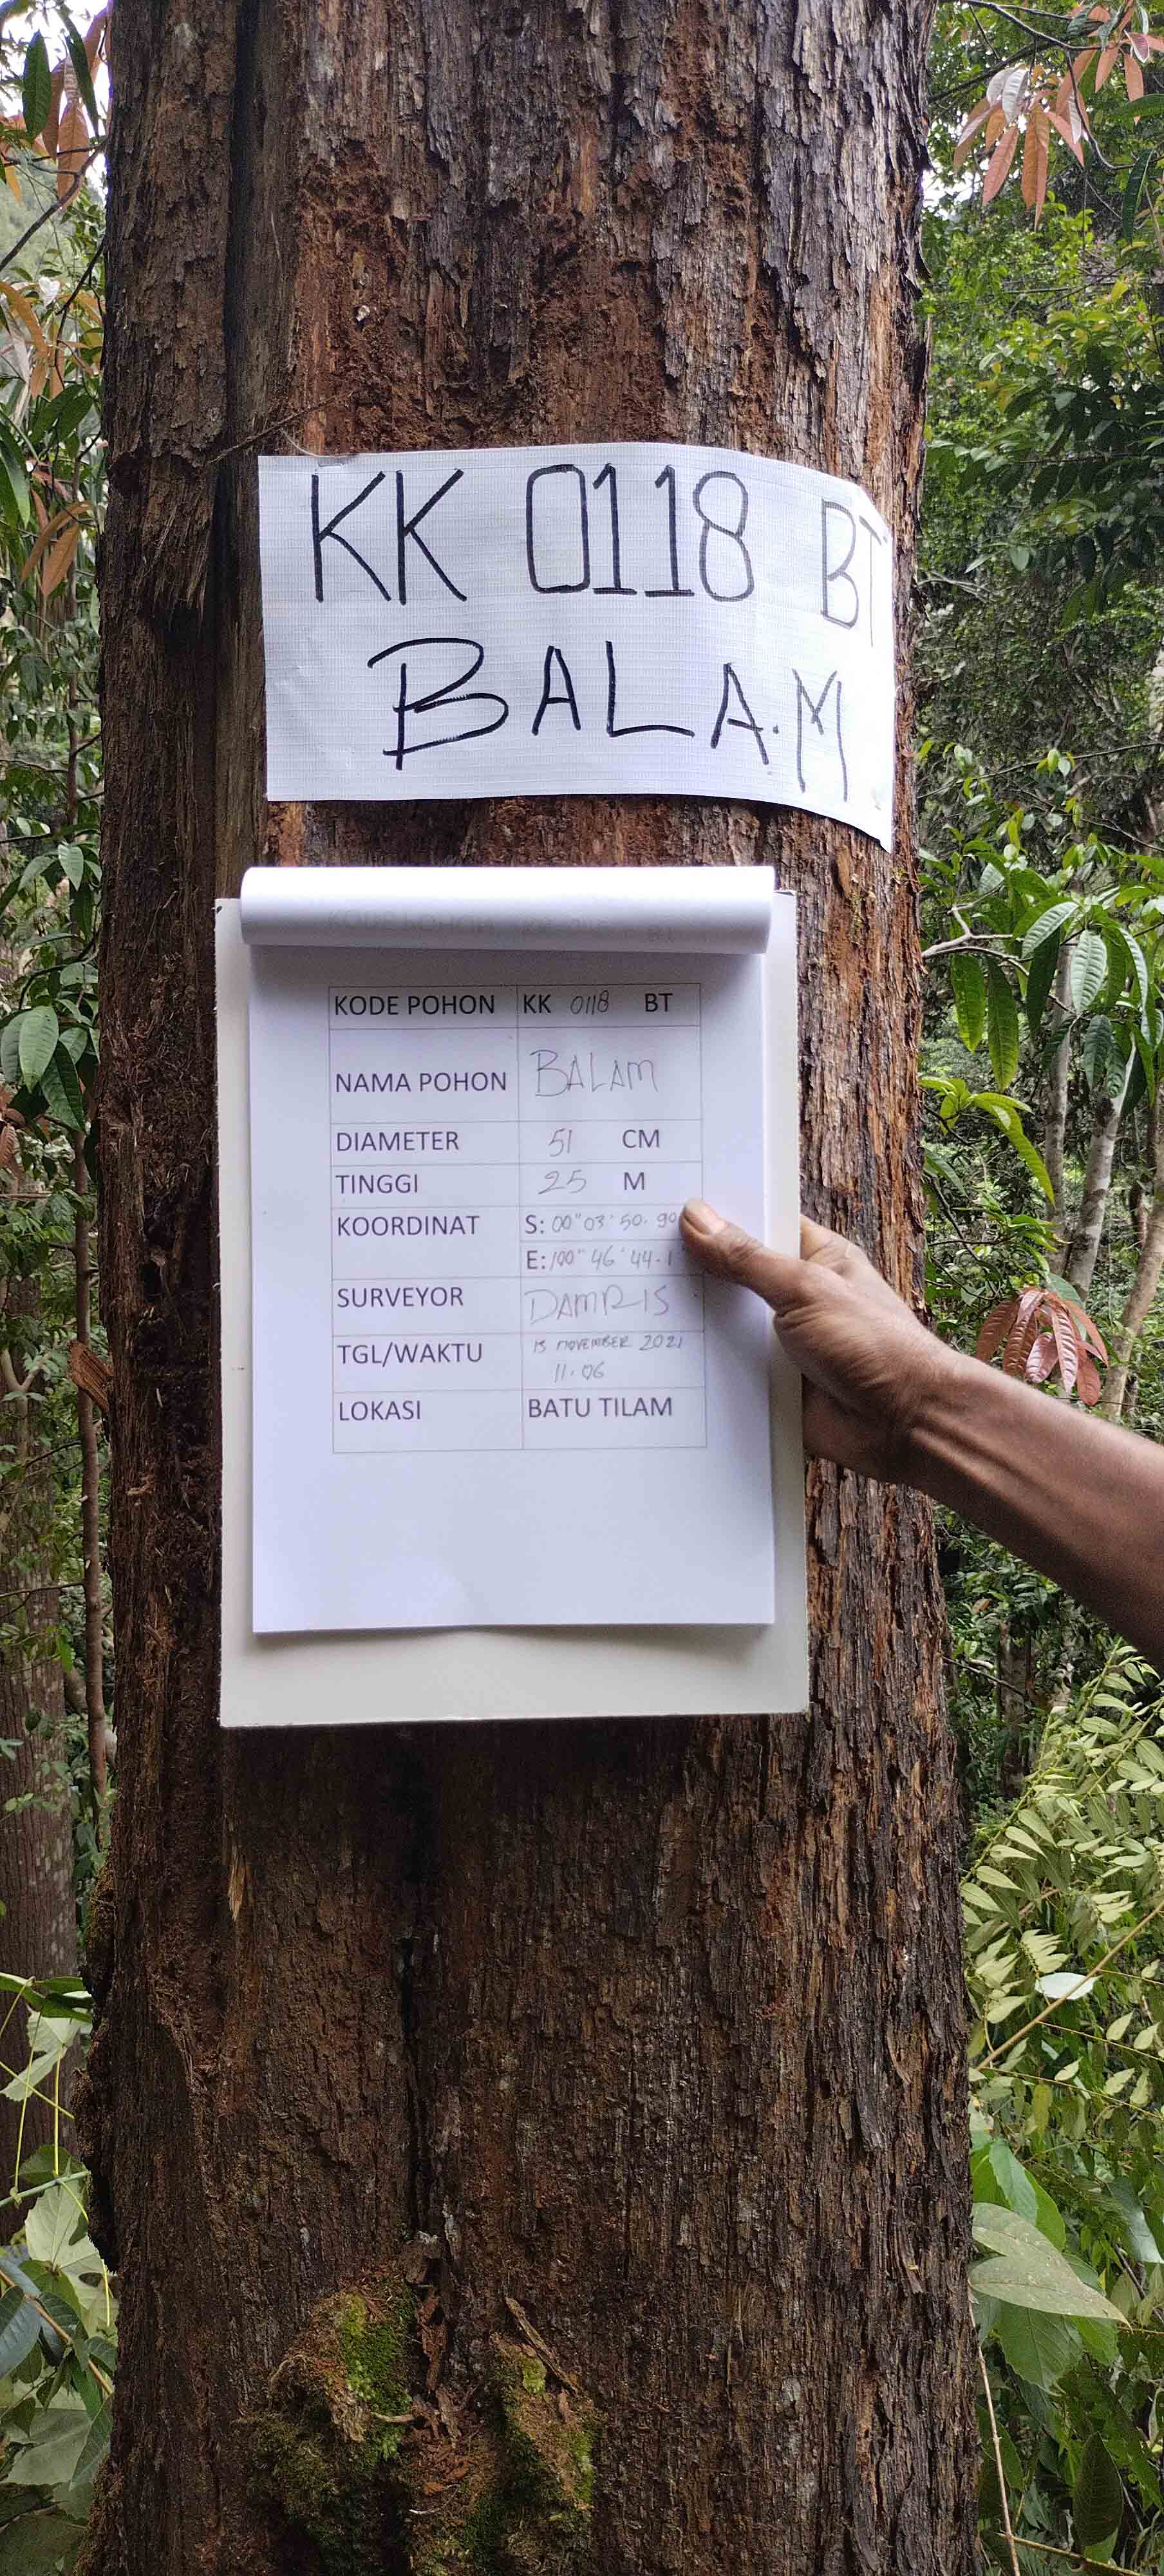 KK 0118 BT
BALAM
KODE POHON KK 0118 BT
NAMA POHON BALAM
DIAMETER 51 CM
TINGGI 25 M
KOORDINAT S: 00" 03' 50.90
E: 100" 46' 44.1
SURVEYOR DAMRIS
TGL/WAKTU NOVEMBER 2021
11.06
LOKASI BATU TILAM